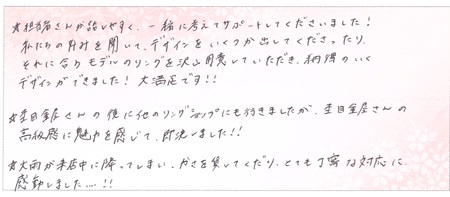 ☆担当者さんが話しやすく、一緒に考えてサポートしてくださいました！
私たちの好みを聞いて、デザインをいくつか出してくださったり、
それに合うモデルのリングを沢山用意していただき、納得のいく
デザインができました！大満足です!!
☆杢目金屋さんの後に他のリングショップにも行きましたが、杢目金屋さんの
高級感に魅力を感じて、即決しました!!
☆大雨が来店中に降ってしまい、かさを貸してくださり、とても丁寧な対応に
感動しました…!!